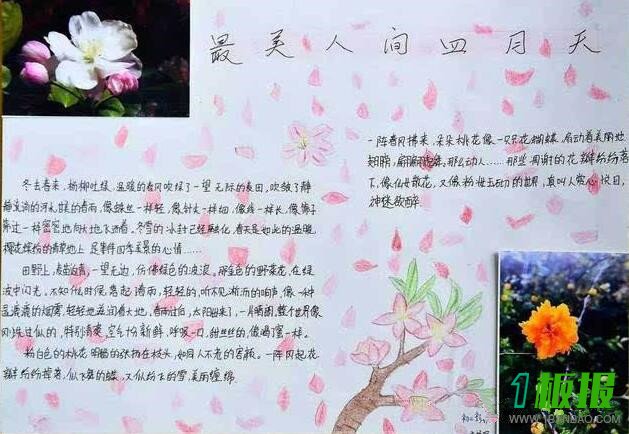 最美人间四月天
冬去春来，杨柳吐绿，温暖的春风吹绿了一望无际的麦田，吹皱了静
静流淌的河水。甘美的春雨，像蛛丝一样轻，像针尖一样细，像线一样长，像筛子
筛过一样密密地向大地飞洒着。冬雪的冰封已经融化，春天是如此的温暖，
田野上，麦苗青青，一望无边，仿佛绿色的波浪。那金色的野菜花，在绿
波中闪光。不知什么时候，飘起了春雨，轻轻的，听不见淅沥的响声，像一种
湿漉漉的烟雾，轻轻地滋润着大地。春雨过后，太阳出来了，一片晴朗，整个世界像
刚洗过似的，特别清爽，空气份新鲜，呼吸一口，甜丝丝的，像喝了蜜一样。
粉白色的桃花明畅的张扬在枝头，如同人不老的容颜。一阵风起花
瓣纷纷掉落，似飞舞的蝶，又似纷飞的雪，美丽缠绵
一阵春风拂来，朵朵桃花像一只只花蝴蝶，扇动着美丽地
翅膀，翩翩起舞，那么动人……那些凋谢的花瓣纷纷落
下，像仙女散花，又像粉妆玉砌的世界，真叫人赏心悦目，
神迷欲醉
1板报
WWW.1BANBAO.COM